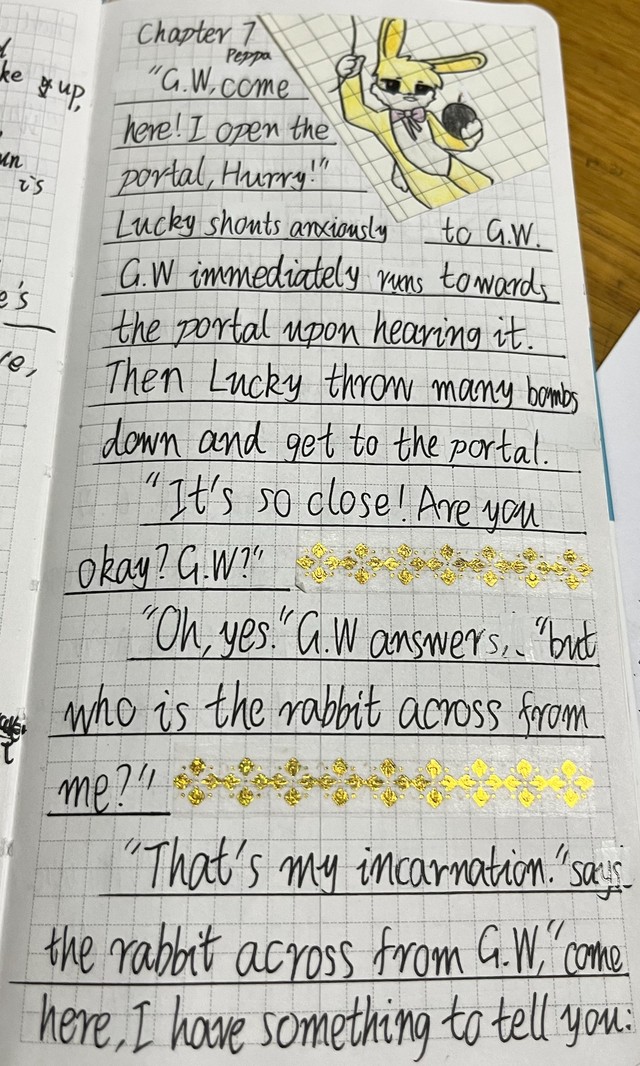 ke up,
is
e's
re,
Chapter 7
Peppa
"G.W, come
here! I open the
portal, Hurry!"
Lucky shouts anxiously to G.W.
G.W immediately runs towards
the portal upon hearing it.
Then Lucky throw many bombs
down and get to the portal.
"It's so close! Are you
okay? G.W?"
"Oh, yes." G.W answers, "but
who is the rabbit across from
me?"
"That's my incarnation." says
the rabbit across from G.W, "come
here, I have something to tell you: